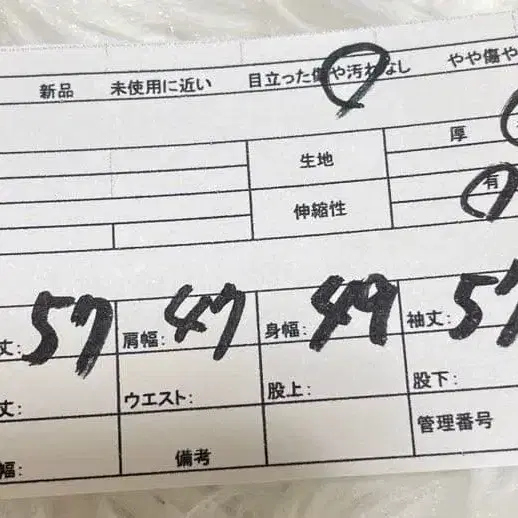 新品 未使用に近い 目立った傷や汚れなし やや傷や
生地 厚
伸縮性 有
丈: 57 肩幅: 47 身幅: 49 袖丈: 57
丈: ウエスト: 股上: 股下:
幅: 備考 管理番号